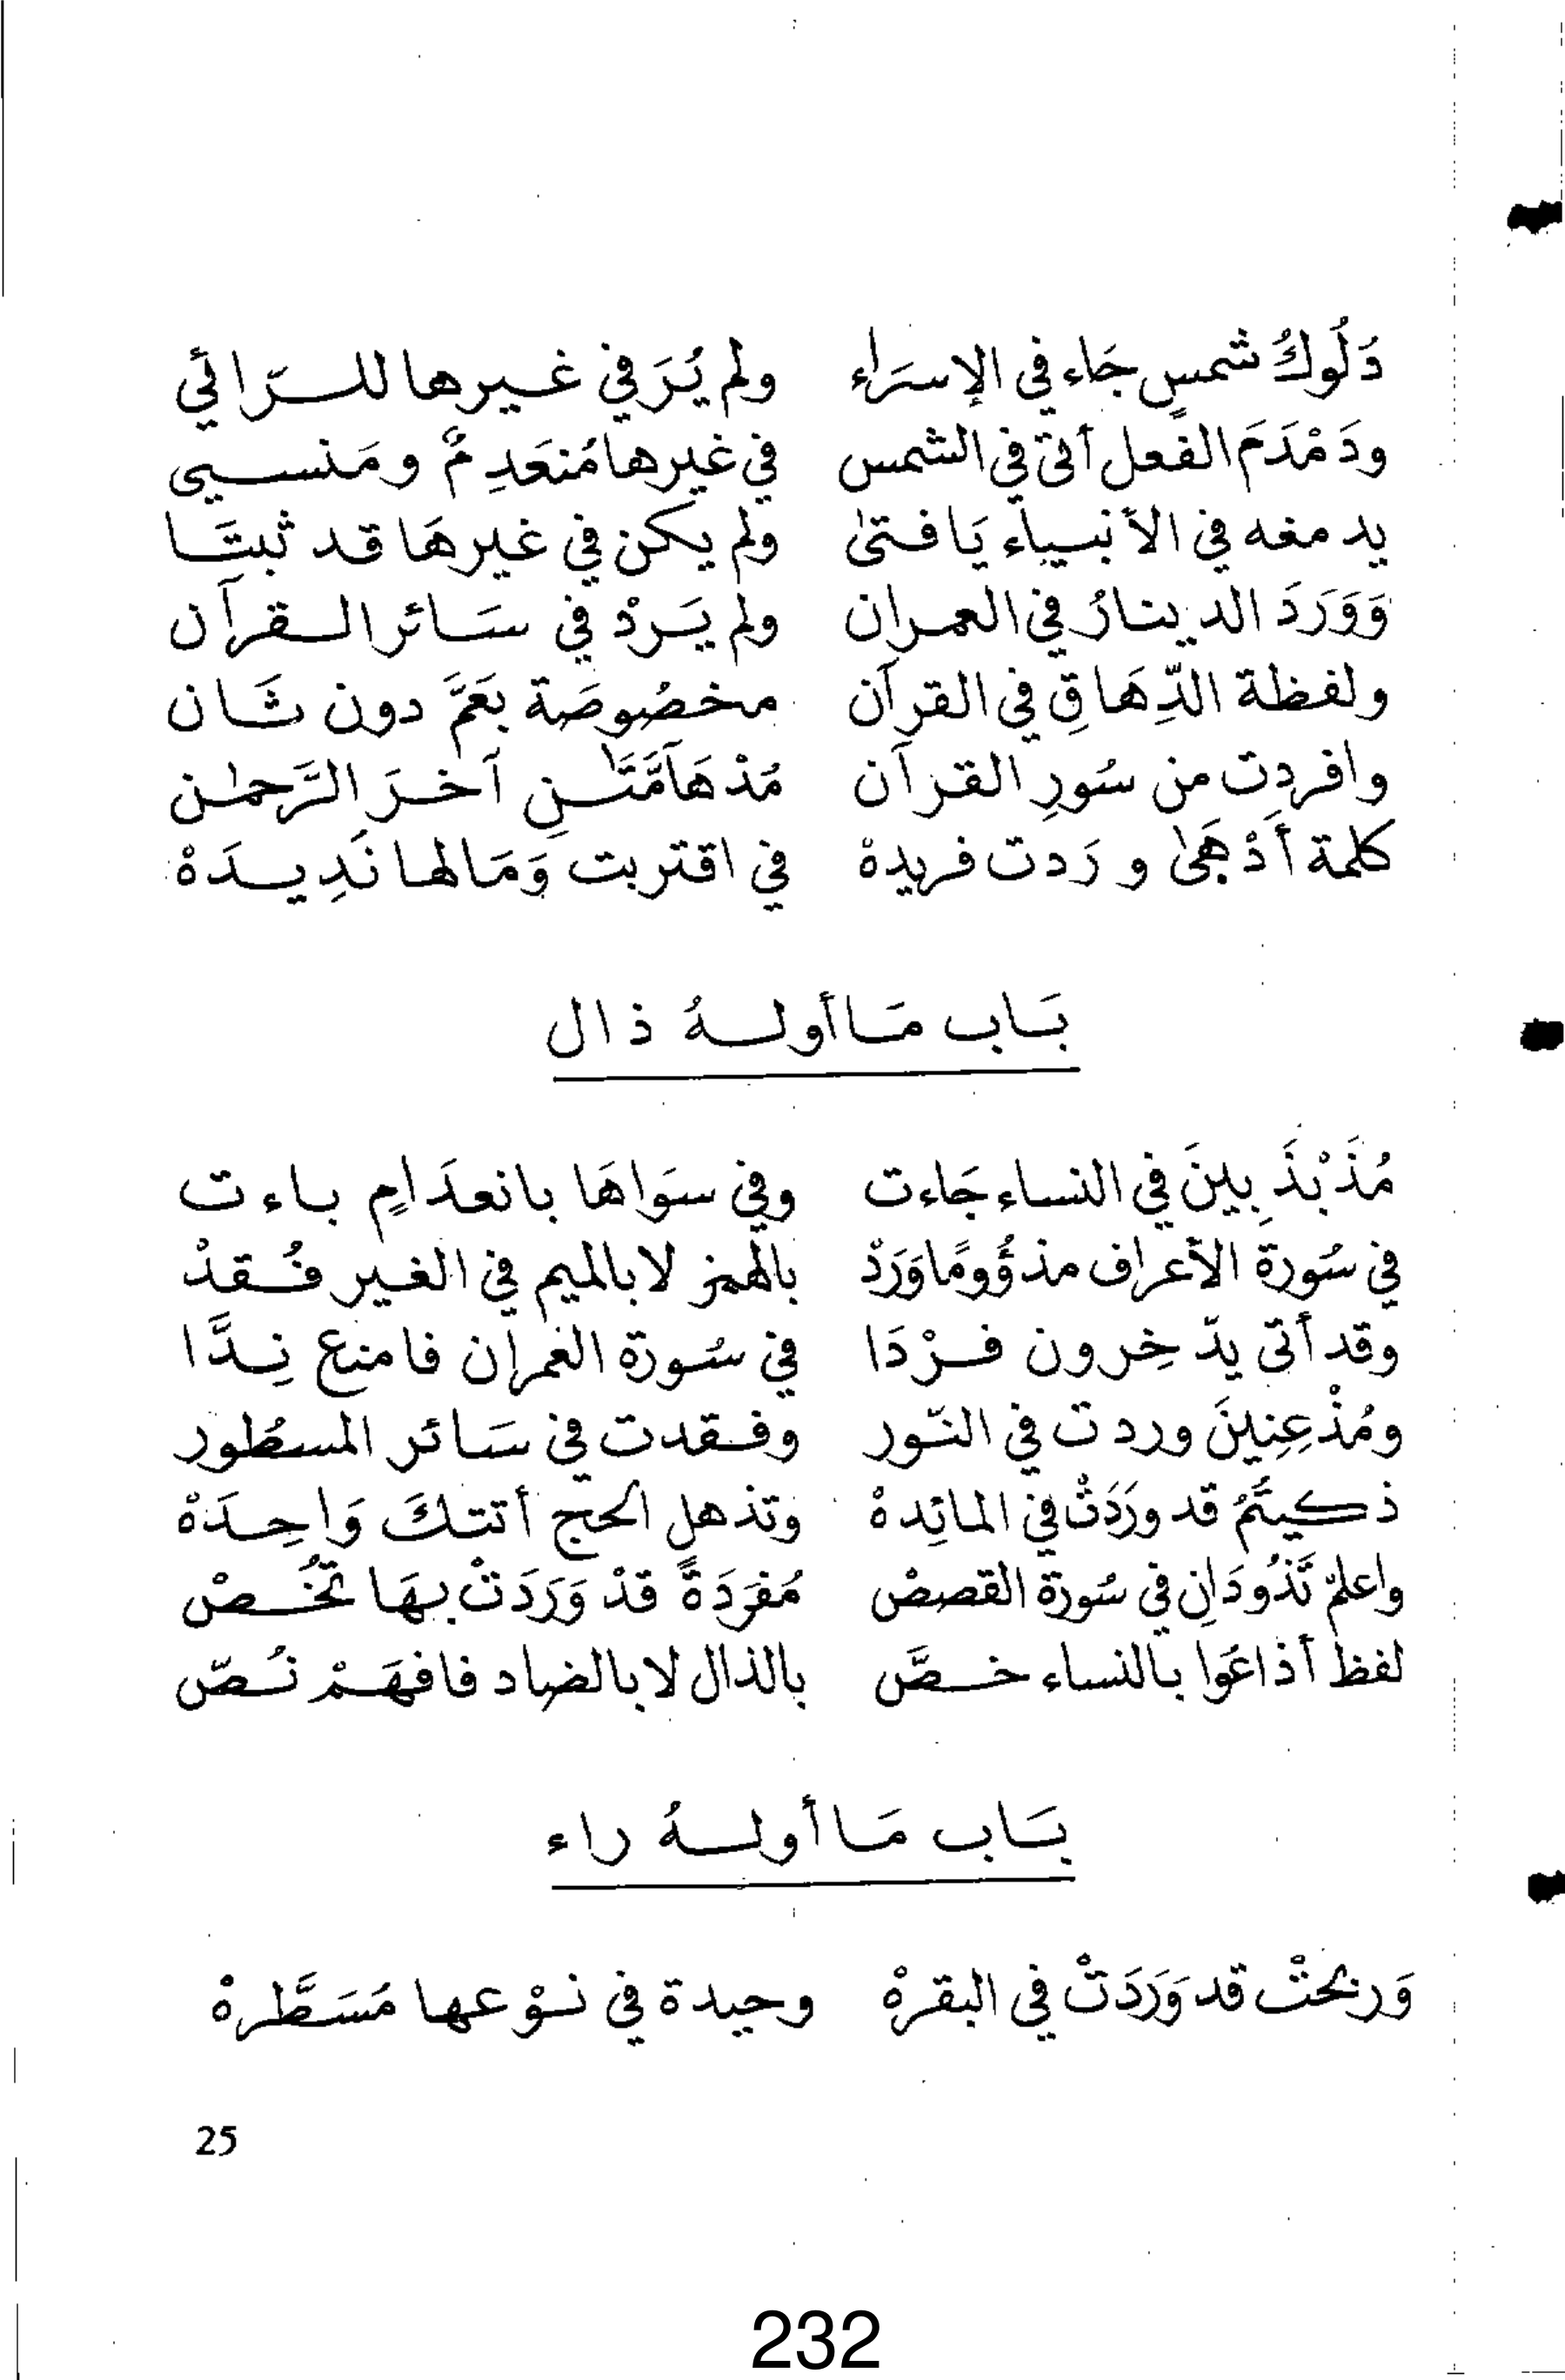 دُلُوكُ شمسٍ جَاء في الإسرَاء ولم يُرَ في غيرها للرّائي
ودَمْدَمَ الفعل أتى في الشمس في غيرها مُنعَدِمٌ ومَنسيي
يدمغه في الأنبياء يَا فتىٰ ولم يكن في غيرهَا قد ثبتَا
وَوَرَدَ الدينارُ في العمران ولم يَرِدْ في سَائر القرآن
ولفظة الدِّهَاقِ في القرآن مخصُوصَة بعَمَّ دون ثَان
وافردت من سُورِ القرآن مُدْهَآمَّتَٰنِ آخرَ الرَّحمٰن
كلمة أَدْهَىٰ وردت فريدهْ في اقتربت وَمَا لها نَدِيدَهْ
بَاب مَا أولهُ ذال
مُذَبْذَبِينَ في النساء جَاءت وفي سوَاهَا بانعدَامٍ باءت
في سُورة الأعراف مذؤُومًا وَرَدْ بالهمز لا بالميم في الغير فُقدْ
وقد أتى يدّخِرون فرْدَا في سُورة العمران فامنع نِدَّا
ومُذْعِنِينَ وردت في النّور وفقدت في سَائر المسطُور
ذكيتُمُ قد ورَدَتْ في المائِدهْ وتذهل الحج أتتكَ وَاحِدَهْ
واعلمْ تَذُودَانِ في سُورة القصصْ مُفرَدَةً قدْ وَرَدَتْ بهَا تُخُصْ
لفظ أذاعُوا بالنساء خصَّ بالذال لا بالضاد فافهَمْ نُصّ
بَاب مَا أولهُ راء
وَربحتْ قد وَرَدَتْ في البقرهْ وحيدة في نوْعها مُسَطَّرهْ
25
232